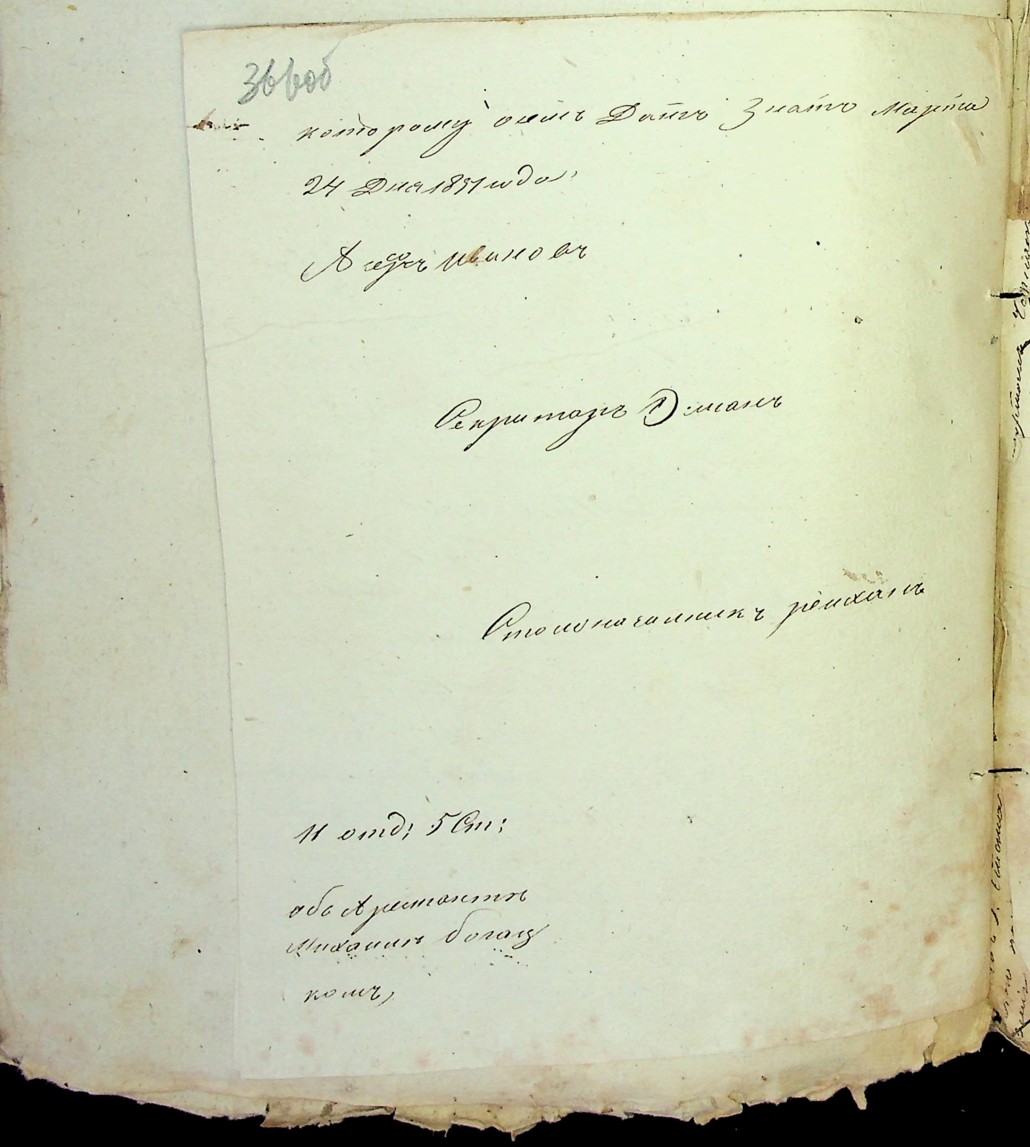 366 об
которому оемъ Датъ Знать Марта
24 Дня 1851 года,
Ассесъ Ивановъ
Секритарь
Столоначалникъ
II отд: 5 Ст:
объ Арестантѣ
Михаилѣ Богац
комъ,